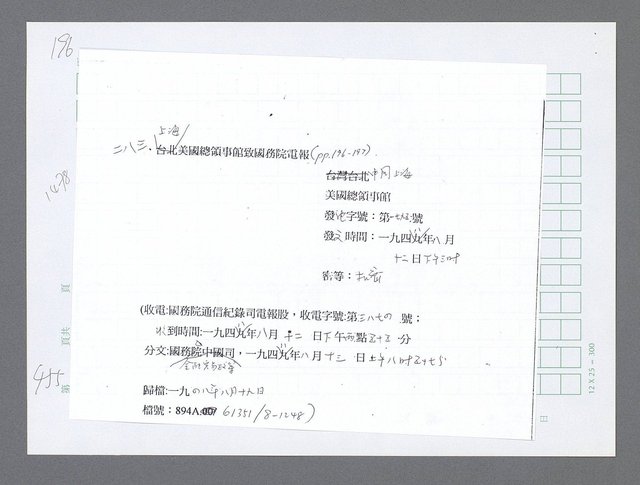 196
上海
二八三.台北美國總領事館致國務院電報(pp.196-197).
台灣台北 中國上海
美國總領事館
發電字號：第一七九五號
發文時間：一九四八年八月
十二日下午三時
密等：機密
1478
(收電:國務院通信紀錄司電報股，收電字號:第三八七四號：
收到時間:一九四八年八月十二日下午兩點五十五分
分文:國務院中國司，一九四八年八月十三日上午八時五十七分
頁
頁共
第
455
歸檔:一九四八年八月十九日
檔號：894A.007 61351/8-1248)
12 X 25 = 300